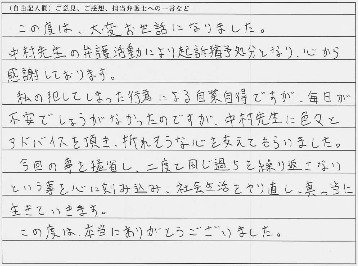 (自由記入欄)ご意見、ご感想、担当弁護士への一言など
この度は、大変お世話になりました。
中村先生の弁護活動により起訴猶予処分となり、心から
感謝しております。
私の犯してしまった行為による自業自得ですが、毎日が
不安でしょうがなかったのですが、中村先生に色々と
アドバイスを頂き、折れそうな心を支えてもらいました。
今回の事を猛省し、二度と同じ過ちを繰り返さない
という事を心に刻み込み、社会生活をやり直し、真っ当に
生きていきます。
この度は、本当にありがとうございました。